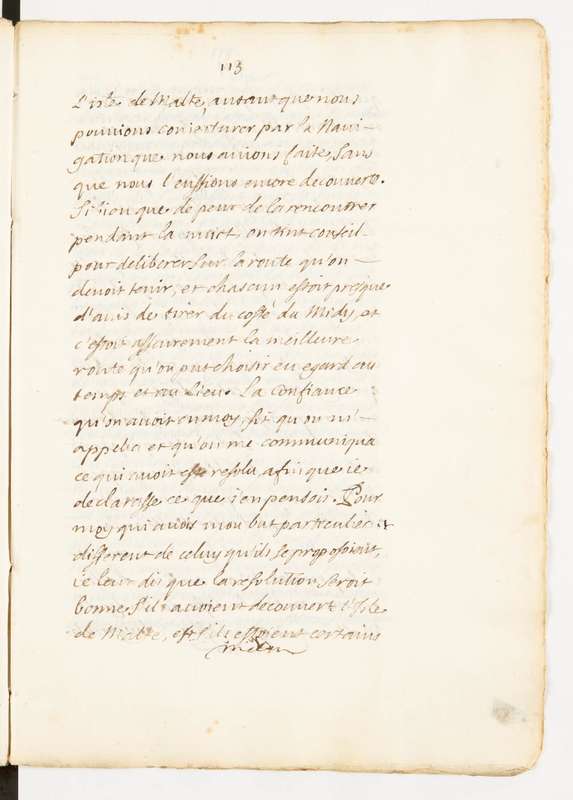 113
L'isle de Malte, autant que nous
pouvions coniecturer par la Naui-
gation que nous auions faite, sans
que nous l'eussions encore decouverte.
Si bien que de peur de la rencontrer
pendant la nuict on tint conseil
pour deliberer sur la route qu'on
deuoit tenir, et chascun estoit presque
d'auis de tirer du costé du Midy, et
c'estoit asseurement la meilleure
route qu'on put choisir eu egard au
temps et au lieu. La confiance
qu'on auoit en moy, fit qu'on m'
appella et qu'on me communiqua
ce qui auoit esté resolu, afin que ie
declarasse ce que i'en pensois. Pour
moy qui auois mon but particulier et
different de celuy qu'ils se proposoient,
ie leur dis que la resolution seroit
bonne s'ils auoient decouvert l'Isle
de Malte, et s'ils estoient certains